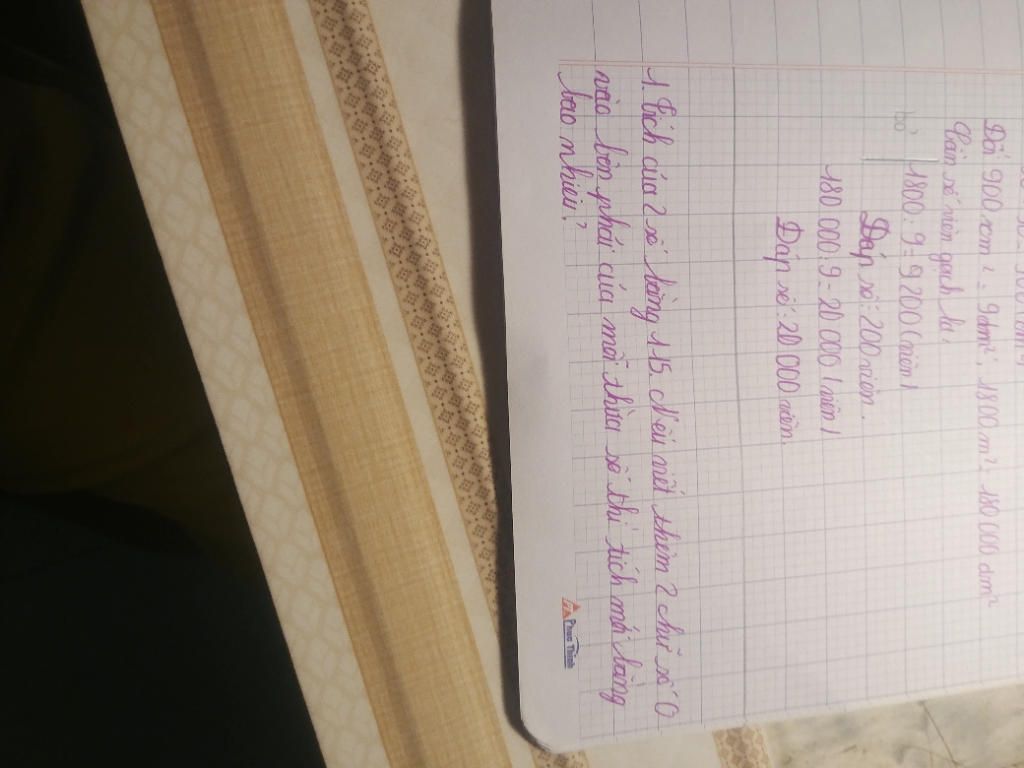 Đổi 900 cm² = 9dm², 1800 m² = 180 000 dm²
Cần số viên gạch là:
1800 : 9 = 9200 (viên)
bỏ
Đáp số: 200 viên.
180 000 : 9 = 20 000 (viên)
Đáp số: 20 000 viên.
1. Tích của 2 số bằng 115. Nếu viết thêm 2 chữ số 0
vào bên phải của mỗi thừa số thì tích mới bằng
bao nhiêu?
Phúc Thịnh